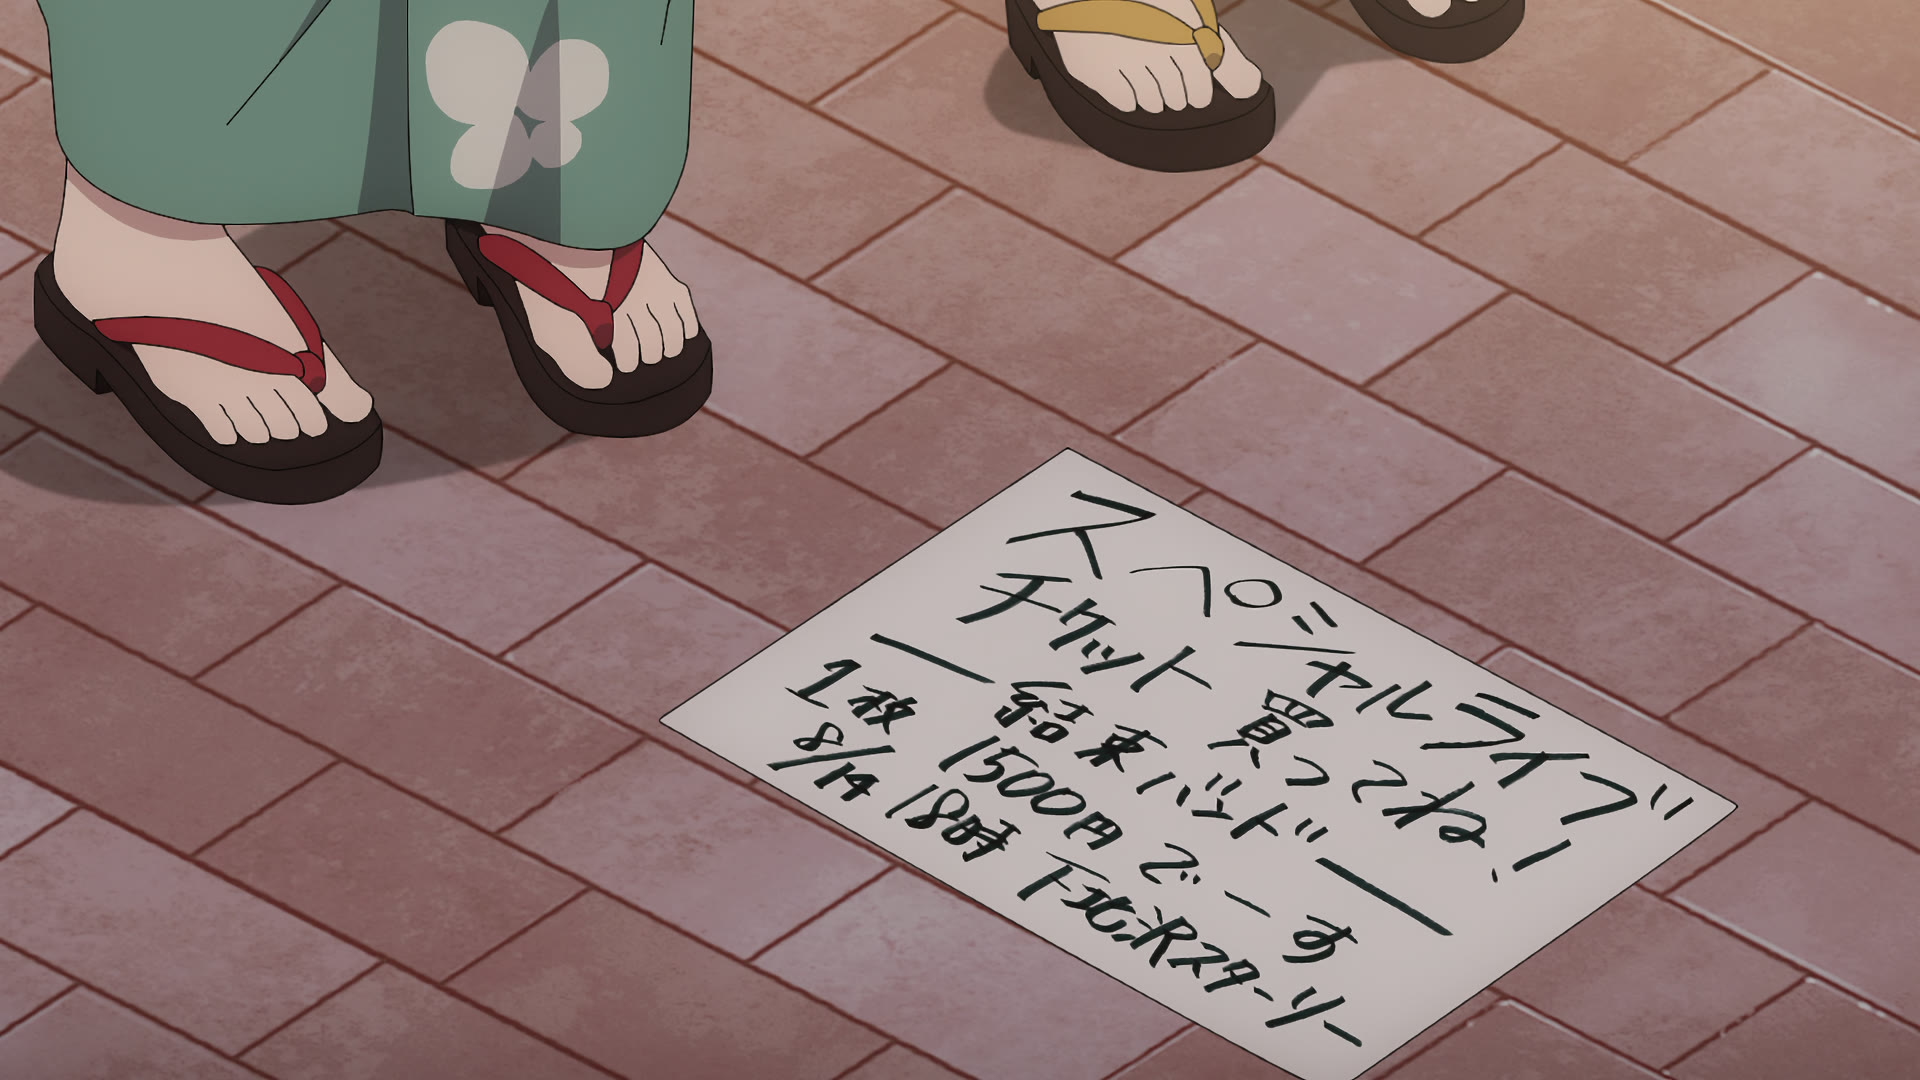 スペシャルライブ
チケット 買ってね!
― 結束バンド ―
1枚 1500円でーす
8/14 18時 下北沢スターリー